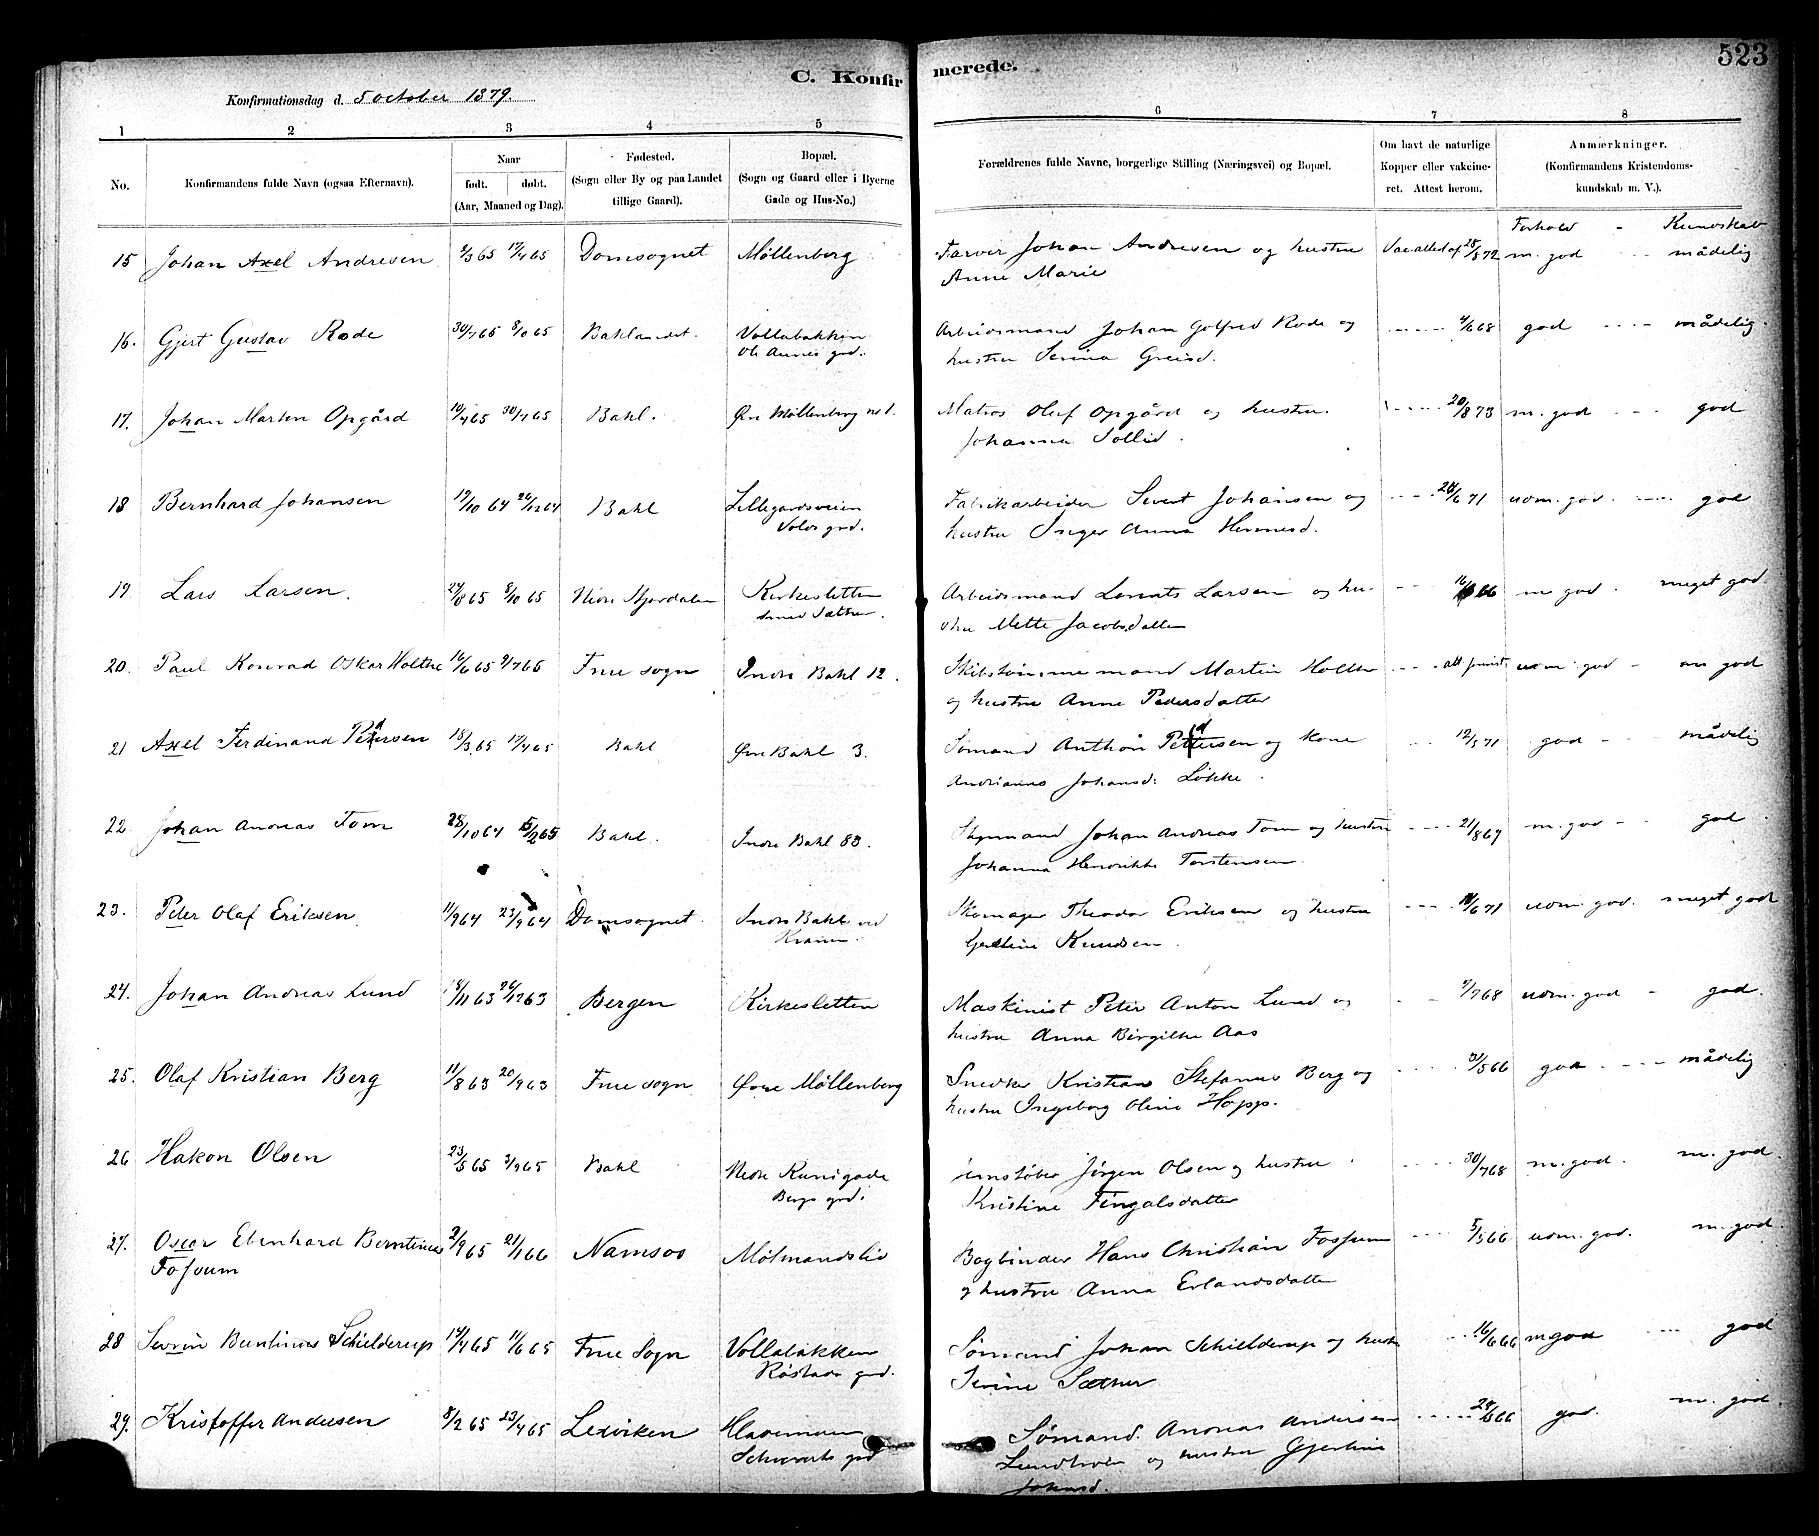 523
C. Konfirmerede.
Konfirmationsdag d. 5 october 1879.
1 2 3 4 5 6 7 8
No.
Konfirmandens fulde Navn (ogsaa Efternavn).
Naar
født. døbt.
(Aar, Maaned og Dag).
Fødested.
(Sogn eller By og paa Landet
tillige Gaard).
Bopæl.
(Sogn og Gaard eller i Byerne
Gade og Hus-No.)
Forældrenes fulde Navne, borgerlige Stilling (Næringsvei) og Bopæl.
Om havt de naturlige
Kopper eller vakcine-
ret. Attest herom.
Anmærkninger.
(Konfirmandens Kristendoms-
kundskab m. V.).
Forhold - Kundskab
15 Johan Axel Andresen 2/3 65 17/4 65 Domsognet Møllenberg Farver Johan Andresen og hustru Vac attest af 28/8 72 m. god mådelig
Anne Marie
16. Gjert Gustav Rode 30/7 65 8/10 65 Baklandet. Vollabakken Arbeidsmand Johan Golfred Rode og 4/6 68 god mådelig.
hustru Serina
17. Johan Marten Opgård 10/4 65 30/7 65 Bakl. Øvre Møllenberg no 1. Matros Oluf Opgård og hustru 20/8 73 m. god god
Johanna Sollid.
18 Bernhard Johansen 19/10 64 26/12 64 Bakl Lillegårdsveien Fabrikarbeider Sivert Johansen og 28/6 71 uom. god. god
hustru Inger Anna
19. Lars Larsen. 24/8 65 8/10 65 Nedre Stjørdalen Kirkesletten Arbeidsmand Lorents Larsen og hu- 66 m god. meget god.
stru Mette Jacobsdatter
20. Paul Konrad Oskar Holthe 16/6 65 9/7 65 Frue sogn Indre Bakl 12. Skibstømmermand Martin Holthe uom. god - m god
og hustru Anne Pedersdatter
21 Axel Ferdinand Petersen 18/3 65 17/4 65 Bakl Øvre Bakl 3. Sømand Anthon Pettersen og kone 12/5 71 god mådelig
Johansd: Løkke.
22. Johan Andreas Tom 28/10 64 5/2 65 Bakl. Indre Bakl 83. Styrmand Johan Andreas Tom og hustru 21/8 67 m. god god
Johanna Henrikke Torstensen.
23. Peter Olaf Eriksen 11/9 64 23/9 64 Domsognet. Indre Bakl ved Skomager Theodor Eriksen og hustru 11/6 71 uom. god. meget god
Kranen. Knudsen.
24. Johan Andreas Lund 18/11 63 26/12 63 Bergen Kirkesletten Maskinist Peter Anton Lund og 9/7 68 uom. god - god.
hustru Anna Birgithe Aas
25. Olaf Kristian Berg 11/8 63 20/9 63 Frue sogn Øvre Møllenberg Snedker Kristian Stefanus Berg og 31/5 66 god mådelig
hustru Ingeborg Oline Hopp.
26 Hakon Olsen 23/5 65 3/9 65 Bakl Nedre Kunigade Jernstøber Jørgen Olsen og hustru 30/7 68 m. god. m. god.
Bergs grd. Kristine Fingalsdatter
27. Oscar Ebenhard Berntinus 2/9 65 21/1 66 Namsos Møllmandslid Bogbinder Hans Christian Fossum 5/5 66 uom. god. m. god.
Fossum og hustru Anna Erlandsdatter
28 Severin Berntinus Schielderup 14/4 65 11/6 65 Frue Sogn Vollabakken Sømand Johan Schielderup og hustru 16/6 66 m god god
Røstads grd. Serine Sæther
29. Kristoffer Andersen 8/2 65 23/4 65 Lexviken Havemoen Sømand. Andreas Andersen 24/6 66 god. m. god.
Schwarts grd og hustru Gjertine
Johnsd.